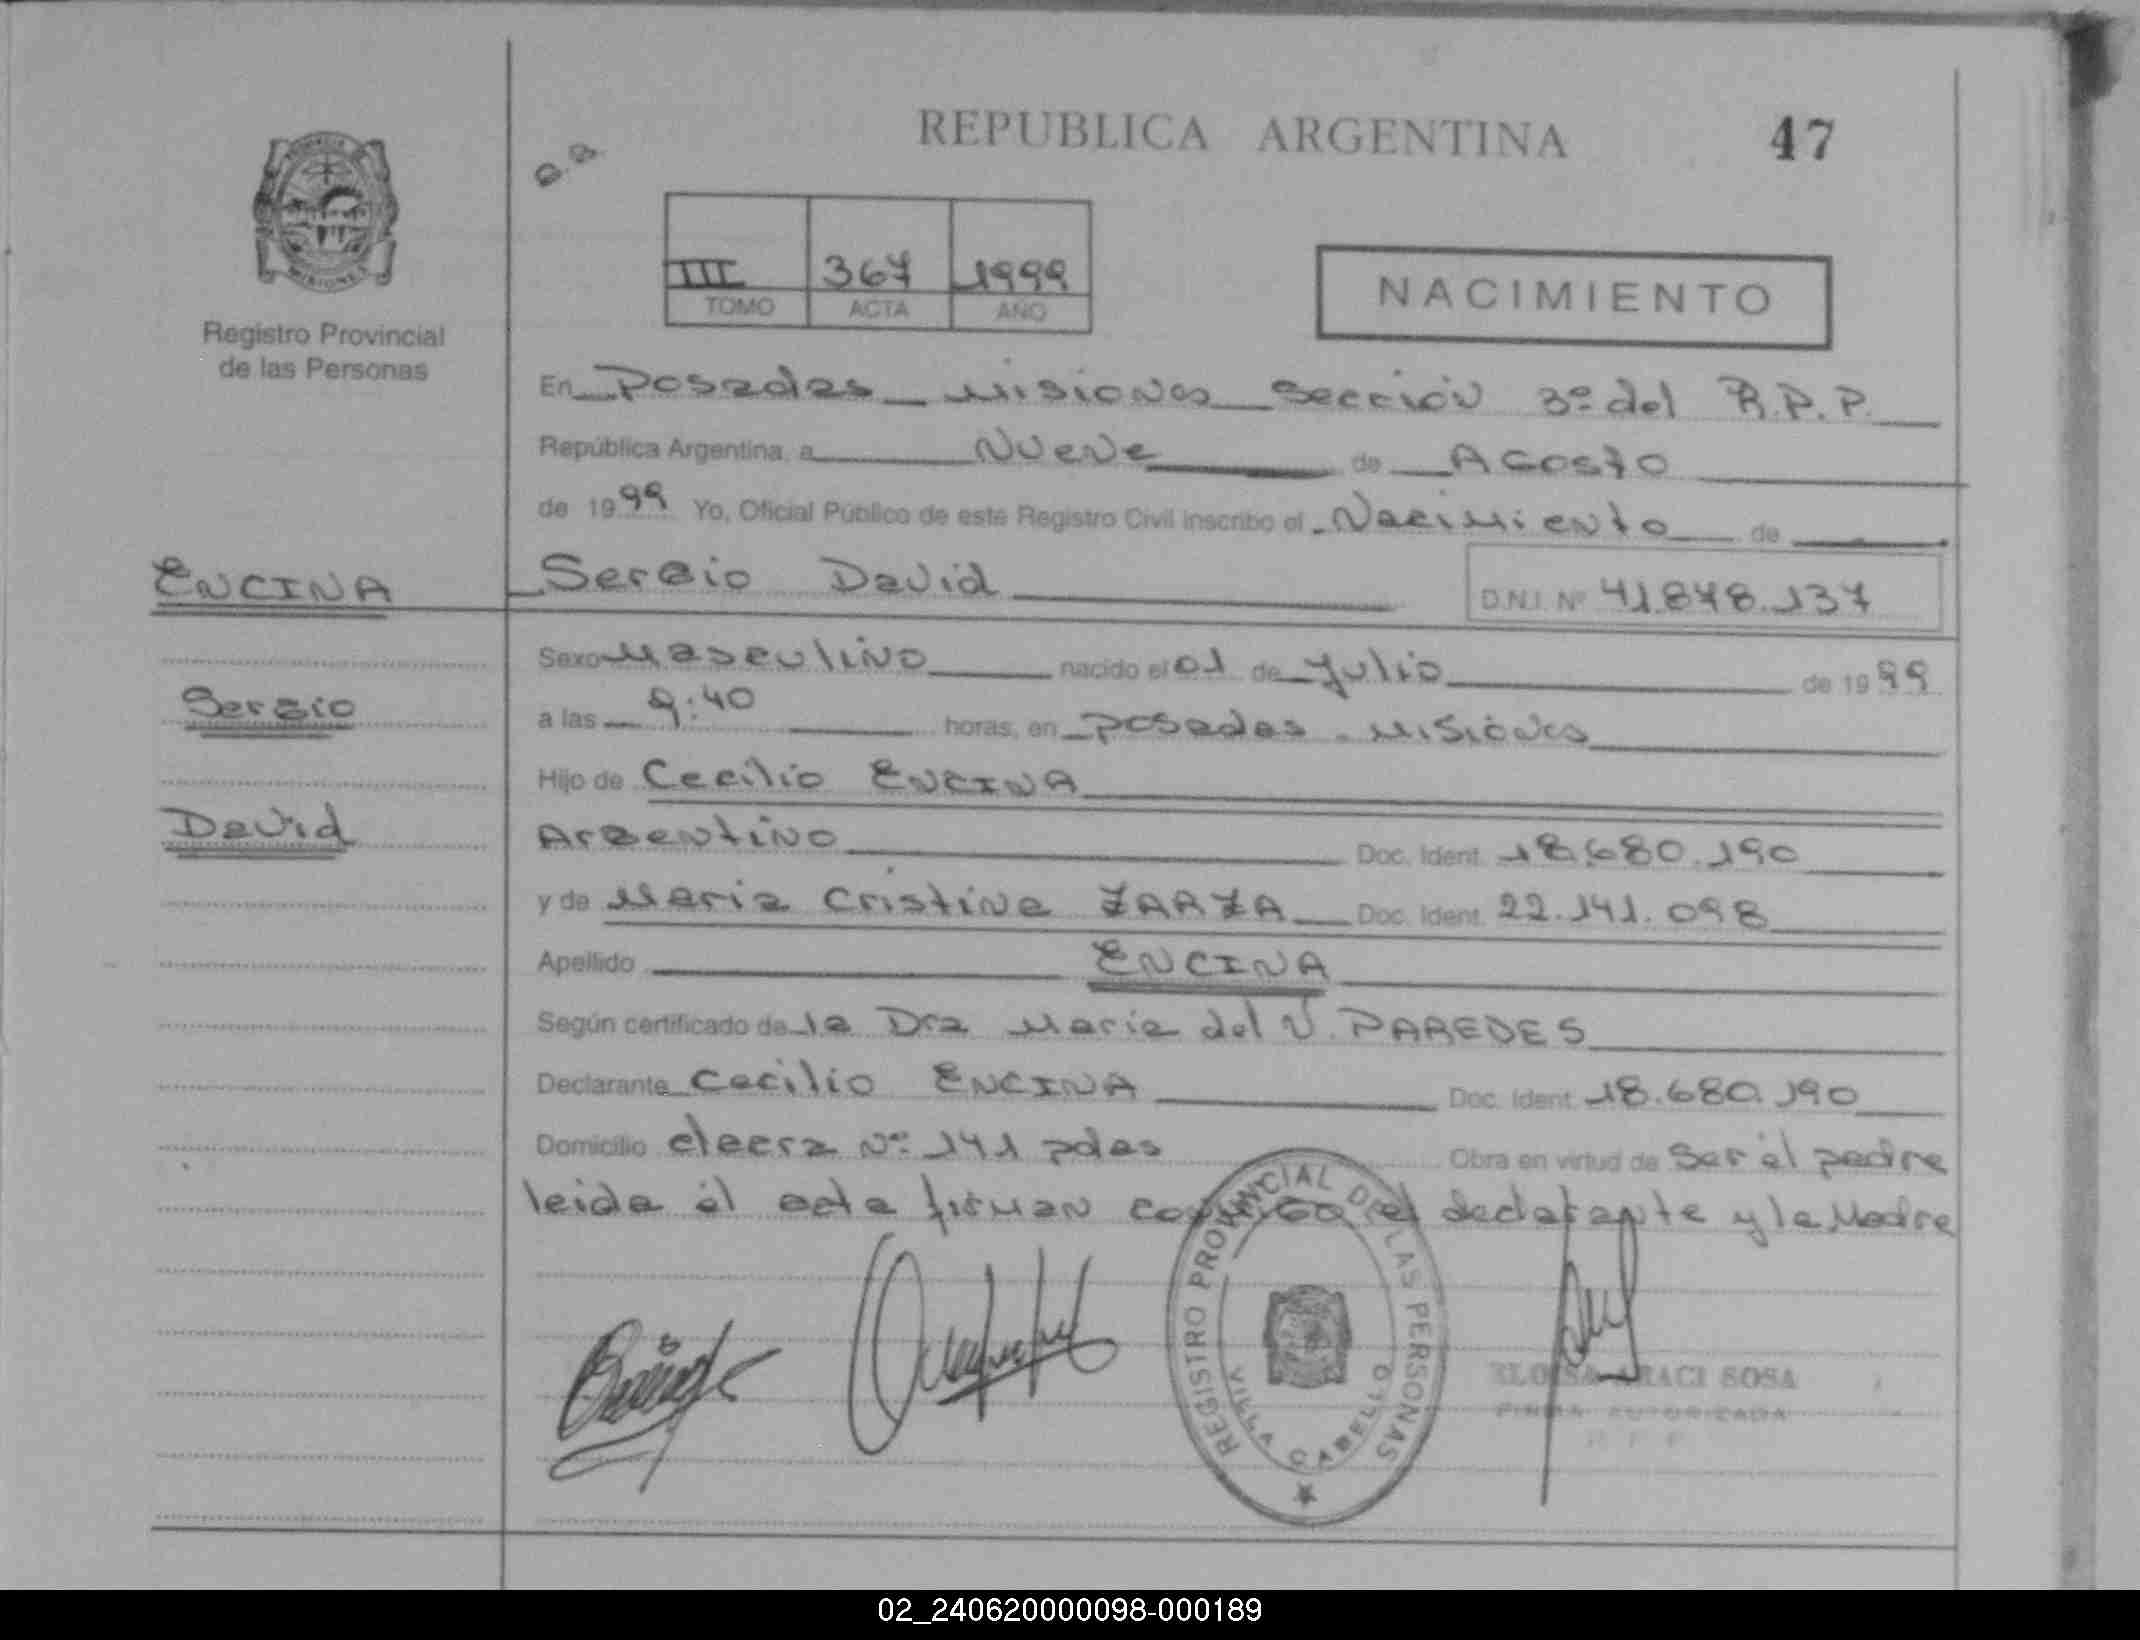 REPUBLICA ARGENTINA
47
III 367 1999
TOMO ACTA AÑO
NACIMIENTO
Registro Provincial
de las Personas
En Posadas Misiones Sección 3º del R.P.P.
República Argentina, a Nueve de Agosto
de 1999 Yo, Oficial Público de este Registro Civil inscribo el Nacimiento de
ENCINA
Sergio David
D.N.I. Nº 41.878.137
Sexo Masculino nacido el 01 de Julio de 1999
Sergio
a las 9:40 horas, en Posadas - Misiones
Hijo de Cecilio ENCINA
David
Argentino Doc. Ident. 18.680.190
y de Maria Cristina ZARZA Doc. Ident. 22.141.098
Apellido ENCINA
Según certificado de la Dra Maria del V. PAREDES
Declarante Cecilio ENCINA Doc. Ident. 18.680.190
Domicilio Nº 141 pdas Obra en virtud de ser el padre
leida el acta firman conmigo el declarante y la Madre
REGISTRO PROVINCIAL DE LAS PERSONAS
VILLA CABELLO
ELOISA ARACI SOSA
FIRMA AUTORIZADA
R P P
02_240620000098-000189